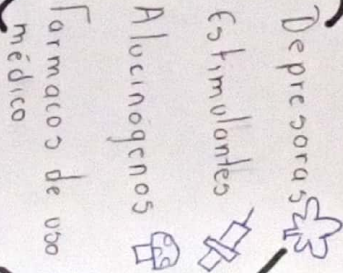 Depresoras
Estimulantes
Alucinógenos
Farmacos de uso
médico